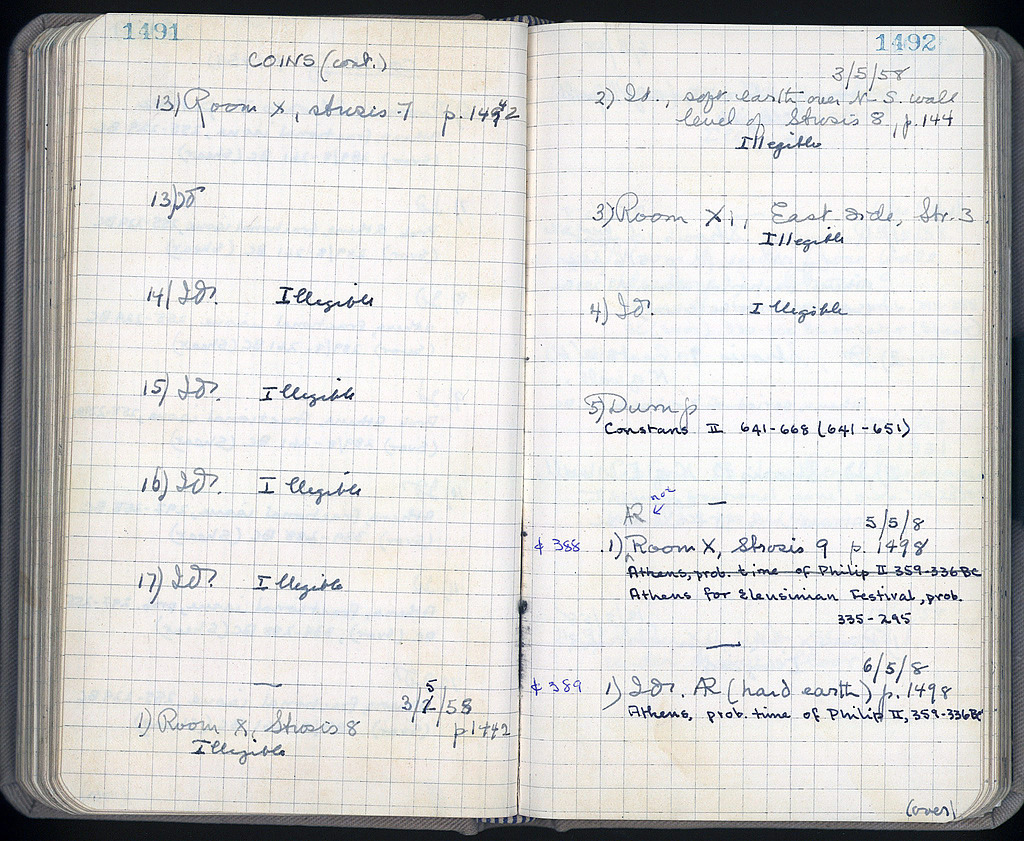 1491
COINS (cont.)
13) Room X, strosis 7 p. 1442
13) Id
14) Id. Illegible
15) Id. Illegible
16) Id. Illegible
17) Id. Illegible
—
3/5/58
1) Room X, Strosis 8 p 1442
Illegible
1492
3/5/58
2) Id., soft earth over N-S. wall
level of Strosis 8, p. 144
Illegible
3) Room XI, East side, Str. 3
Illegible
4) Id. Illegible
5) Dump
Constans II 641-668 (641-651)
—
not
AR
5/5/8
¢ 388 1) Room X, Strosis 9 p. 1498
Athens, prob. time of Philip II 359-336 BC
Athens for Eleusinian Festival, prob.
335-295
—
6/5/8
¢ 389 1) Id. AR (hard earth) p. 1498
Athens, prob. time of Philip II, 359-336 BC
(over)